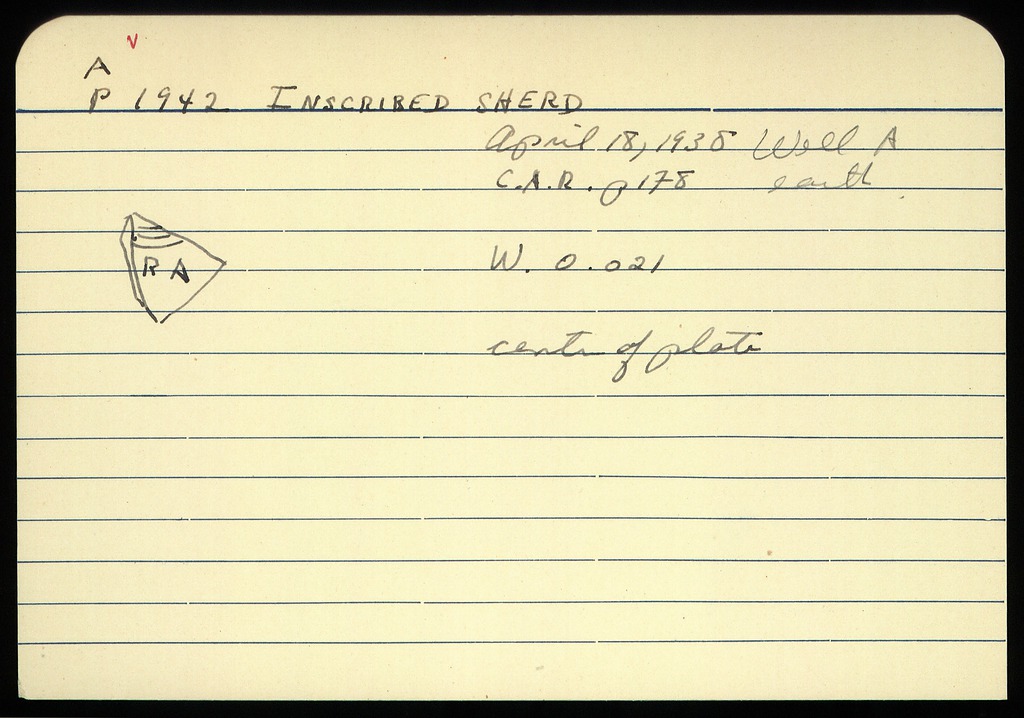 V
A
P 1942 INSCRIBED SHERD
April 18, 1938 Well A
C.A.R. p 178 earth
RA
W. 0.021
centre of plate